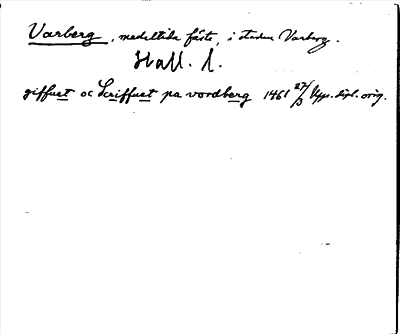 Varberg, medeltida fäste, i staden Varberg.
Hall. l.
giffuet oc Scriffuet pa vordberg 1461 27/3 Upps. dipl. orig.